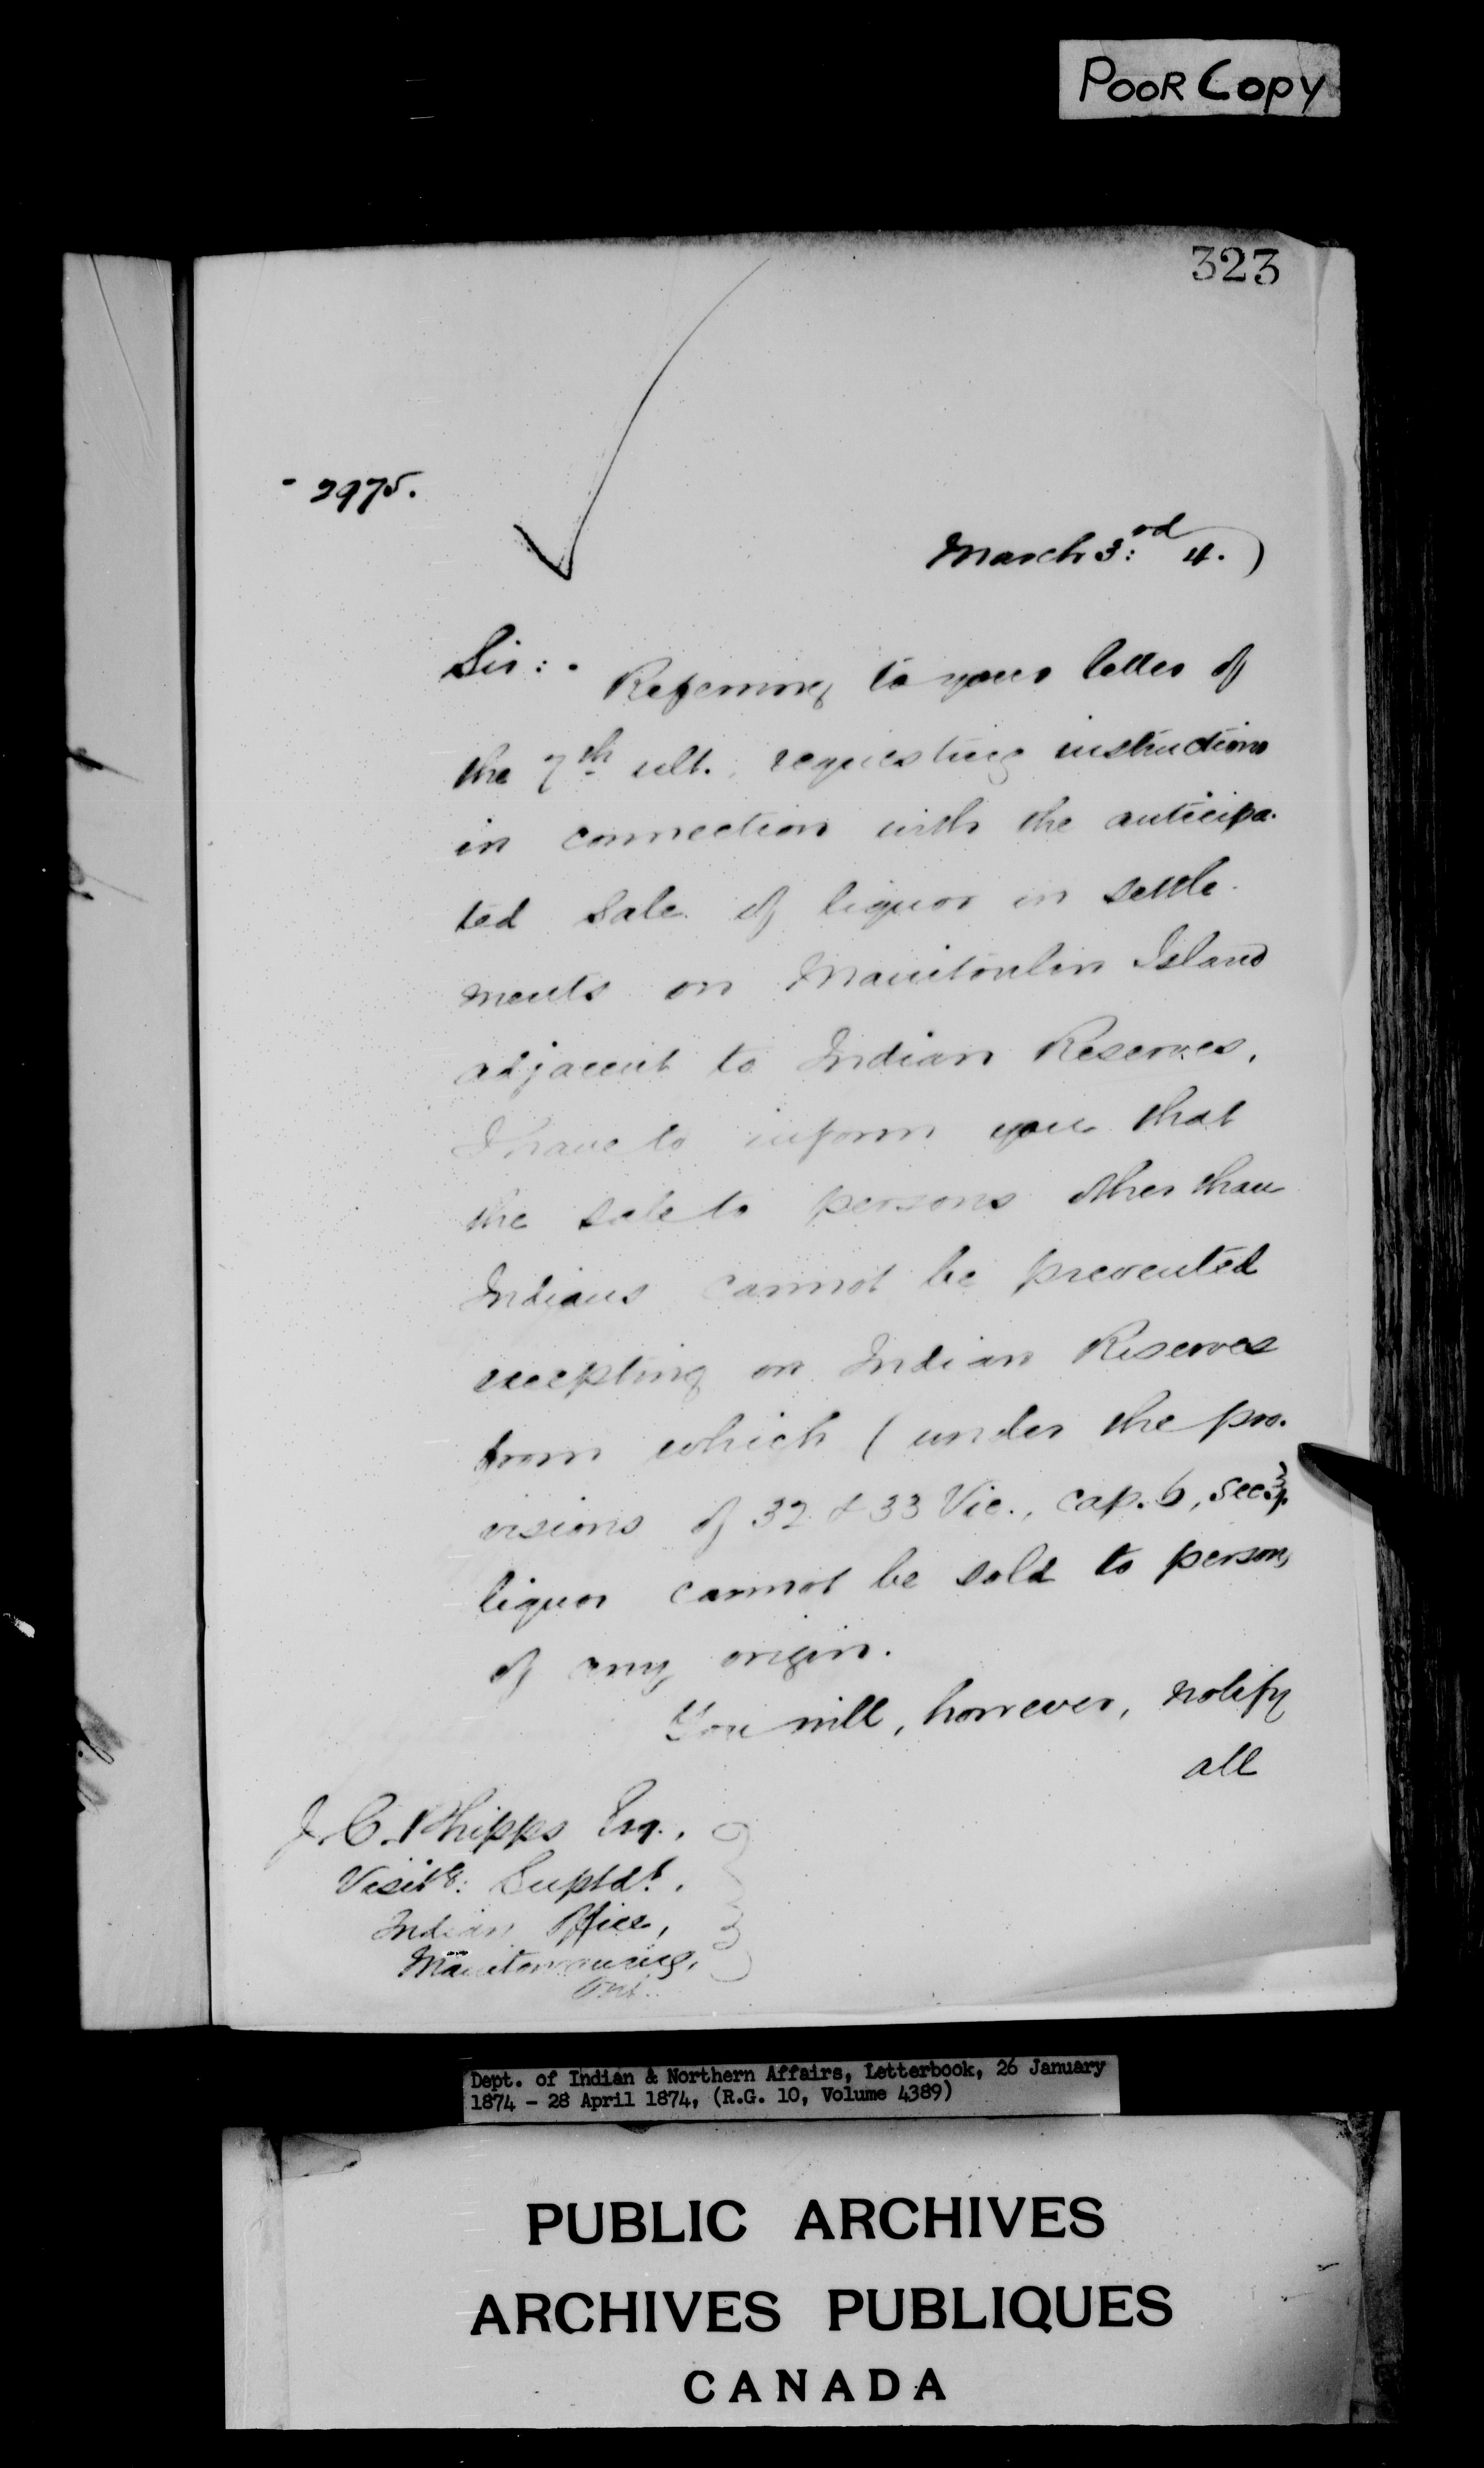 POOR COPY
323
- 2975.
March 3:rd 4.)
Sir:- Referring to your letter of
the 7th ult., requesting instructions
in connection with the anticipa-
ted sale of liquor in settle-
ments on Manitoulin Island
adjacent to Indian Reserves,
I have to inform you that
the sale to persons other than
Indians cannot be prevented
excepting on Indian Reserves
from which (under the pro-
visions of 32 & 33 Vic., cap. 6, sec. 3)
liquor cannot be sold to persons
of any origin.
You will, however, notify
all
J. C. Phipps Esq.,
Visitg: Suptdt.,
Indian Office,
Manitowaning,
Ont.
Dept. of Indian & Northern Affairs, Letterbook, 26 January
1874 - 28 April 1874, (R.G. 10, Volume 4389)
PUBLIC ARCHIVES
ARCHIVES PUBLIQUES
CANADA